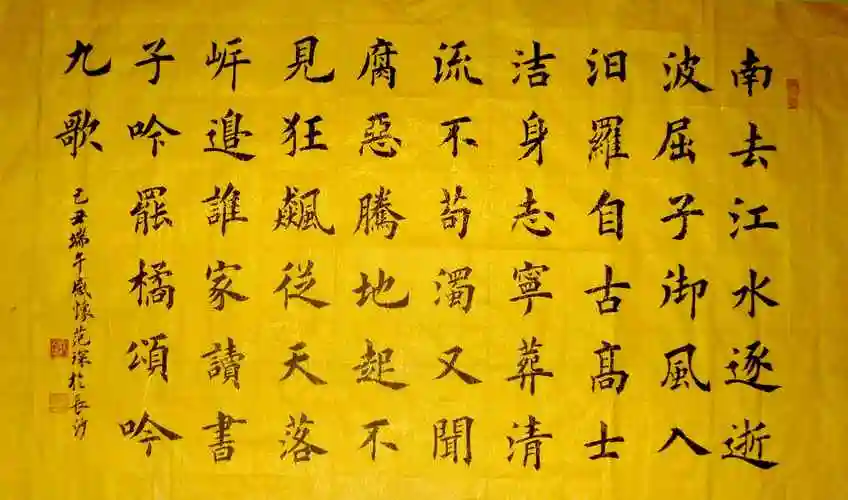 南去江水逐逝
波屈子御風入
汨羅自古髙士
洁身志寧葬清
流不苟濁又聞
腐惡騰地起不
見狂飆從天落
岸邊誰家讀書
子吟罷橘頌吟
九歌
己丑端午感懷范琛於長沙